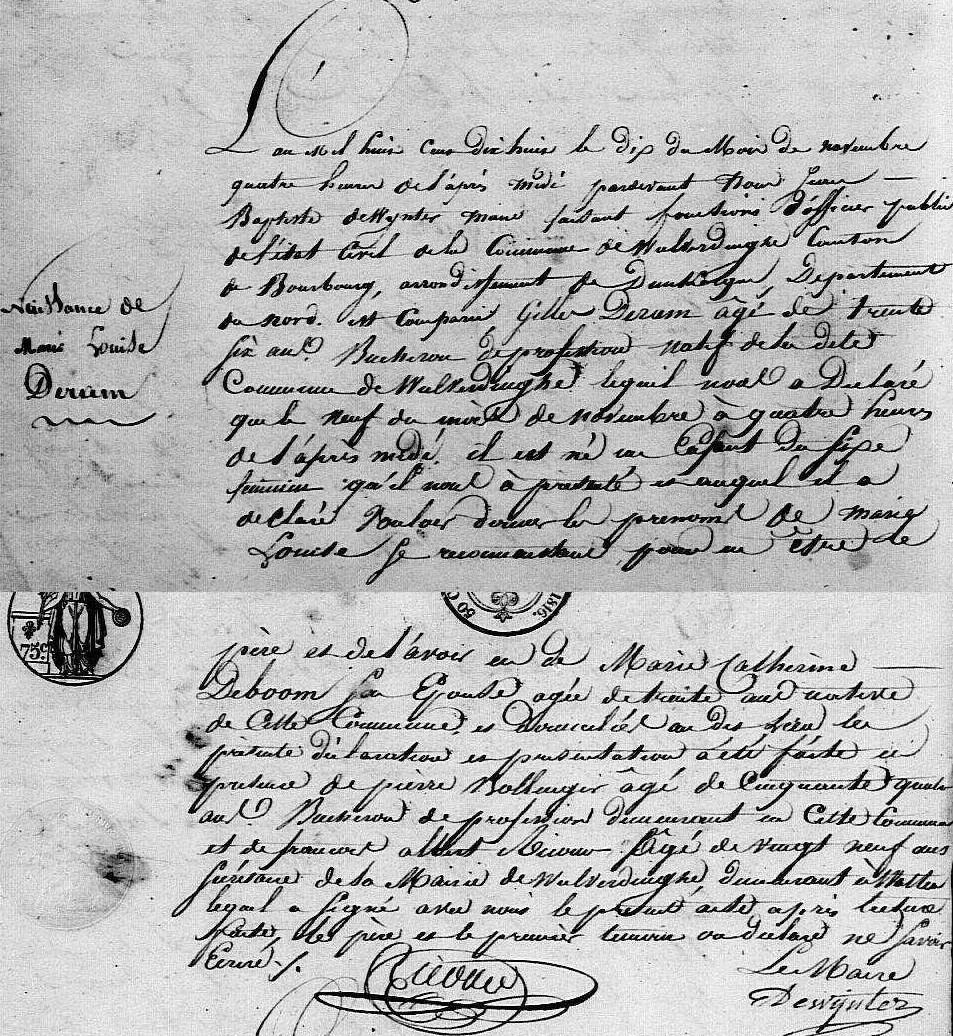 L'an mil huis cens dix huis le dix du Mois de novembre
quatre heures de l'après midi pardevant Nous Jean
Baptiste deWynter maire faisant fonctions d'officier public
de l'état Civil de la Commune de Wulverdinghe Canton
de Bourbourg, arrondissement de Dunkerque, Departement
du nord. est Comparu Gilles Derum âgé de trente
six ans. Bucheron de profession natif de la dite
Commune de Wulverdinghe lequel nous a Declaré
que le neuf du mois de novembre à quatre heures
de l'après midi. il est né un Enfant du sexe
feminin qu'il nous à présenté et auquel il a
declaré Vouloir donner les prenoms de marie
Louise se reconnaissant pour en être le
Naissance de
Marie Louise
Derum
75c
50 C
1816.
père et de l'avoir eu de Marie Catherine
Deboom son Epouse agée de trente ans native
de Cette Commune, et domiciliés au dis Lieu les
présente déclaration et presentation a été faite en
presence de pierre Bollengier âgé de Cinquante quatre
ans. Bucheron de profession demeurant en Cette Commune
et de francois albert âgé de vingt neuf ans
sécrétaire de la Mairie de Wulverdinghe demeurant à Watten
lequel a signé avec nous le présent acte après lecture
faite, le père et le premier temoin on declaré ne savoir
Ecrire ./.
Le Maire
Dewynter